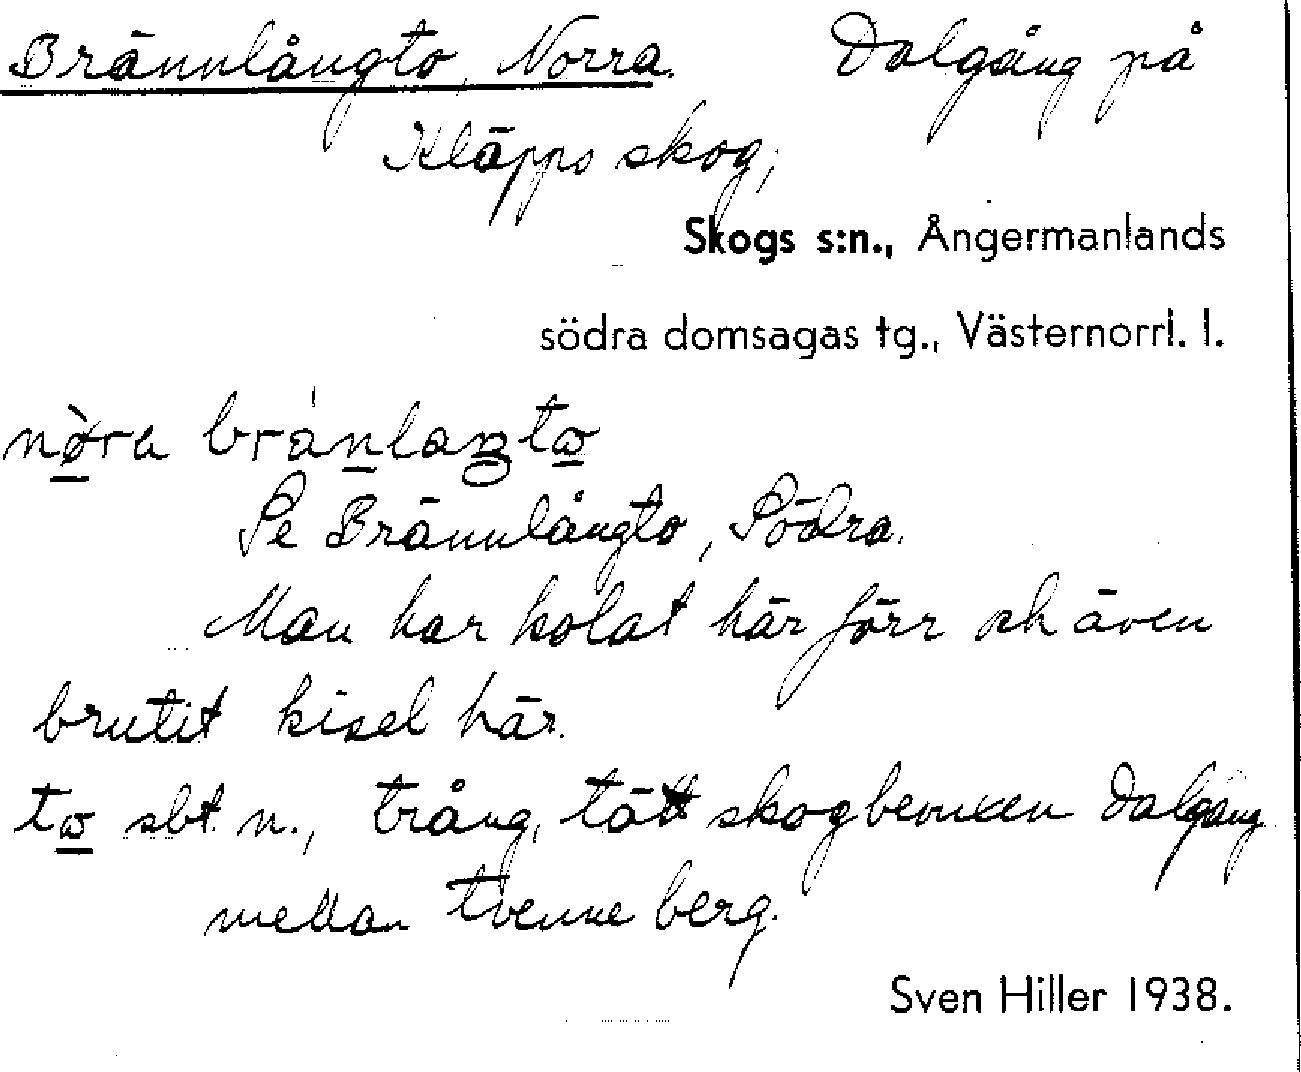 Brännlångto, Norra. Dalgång på
Kläpps skog,
Skogs s:n., Ångermanlands
södra domsagas tg., Västernorrl. l.
Se Brännlångto, Södra.
Man har kolat här förr och även
brutit kisel här.
to sbt. n., trång, tätt skogbevuxen dalgång
mellan tvenne berg.
Sven Hiller 1938.